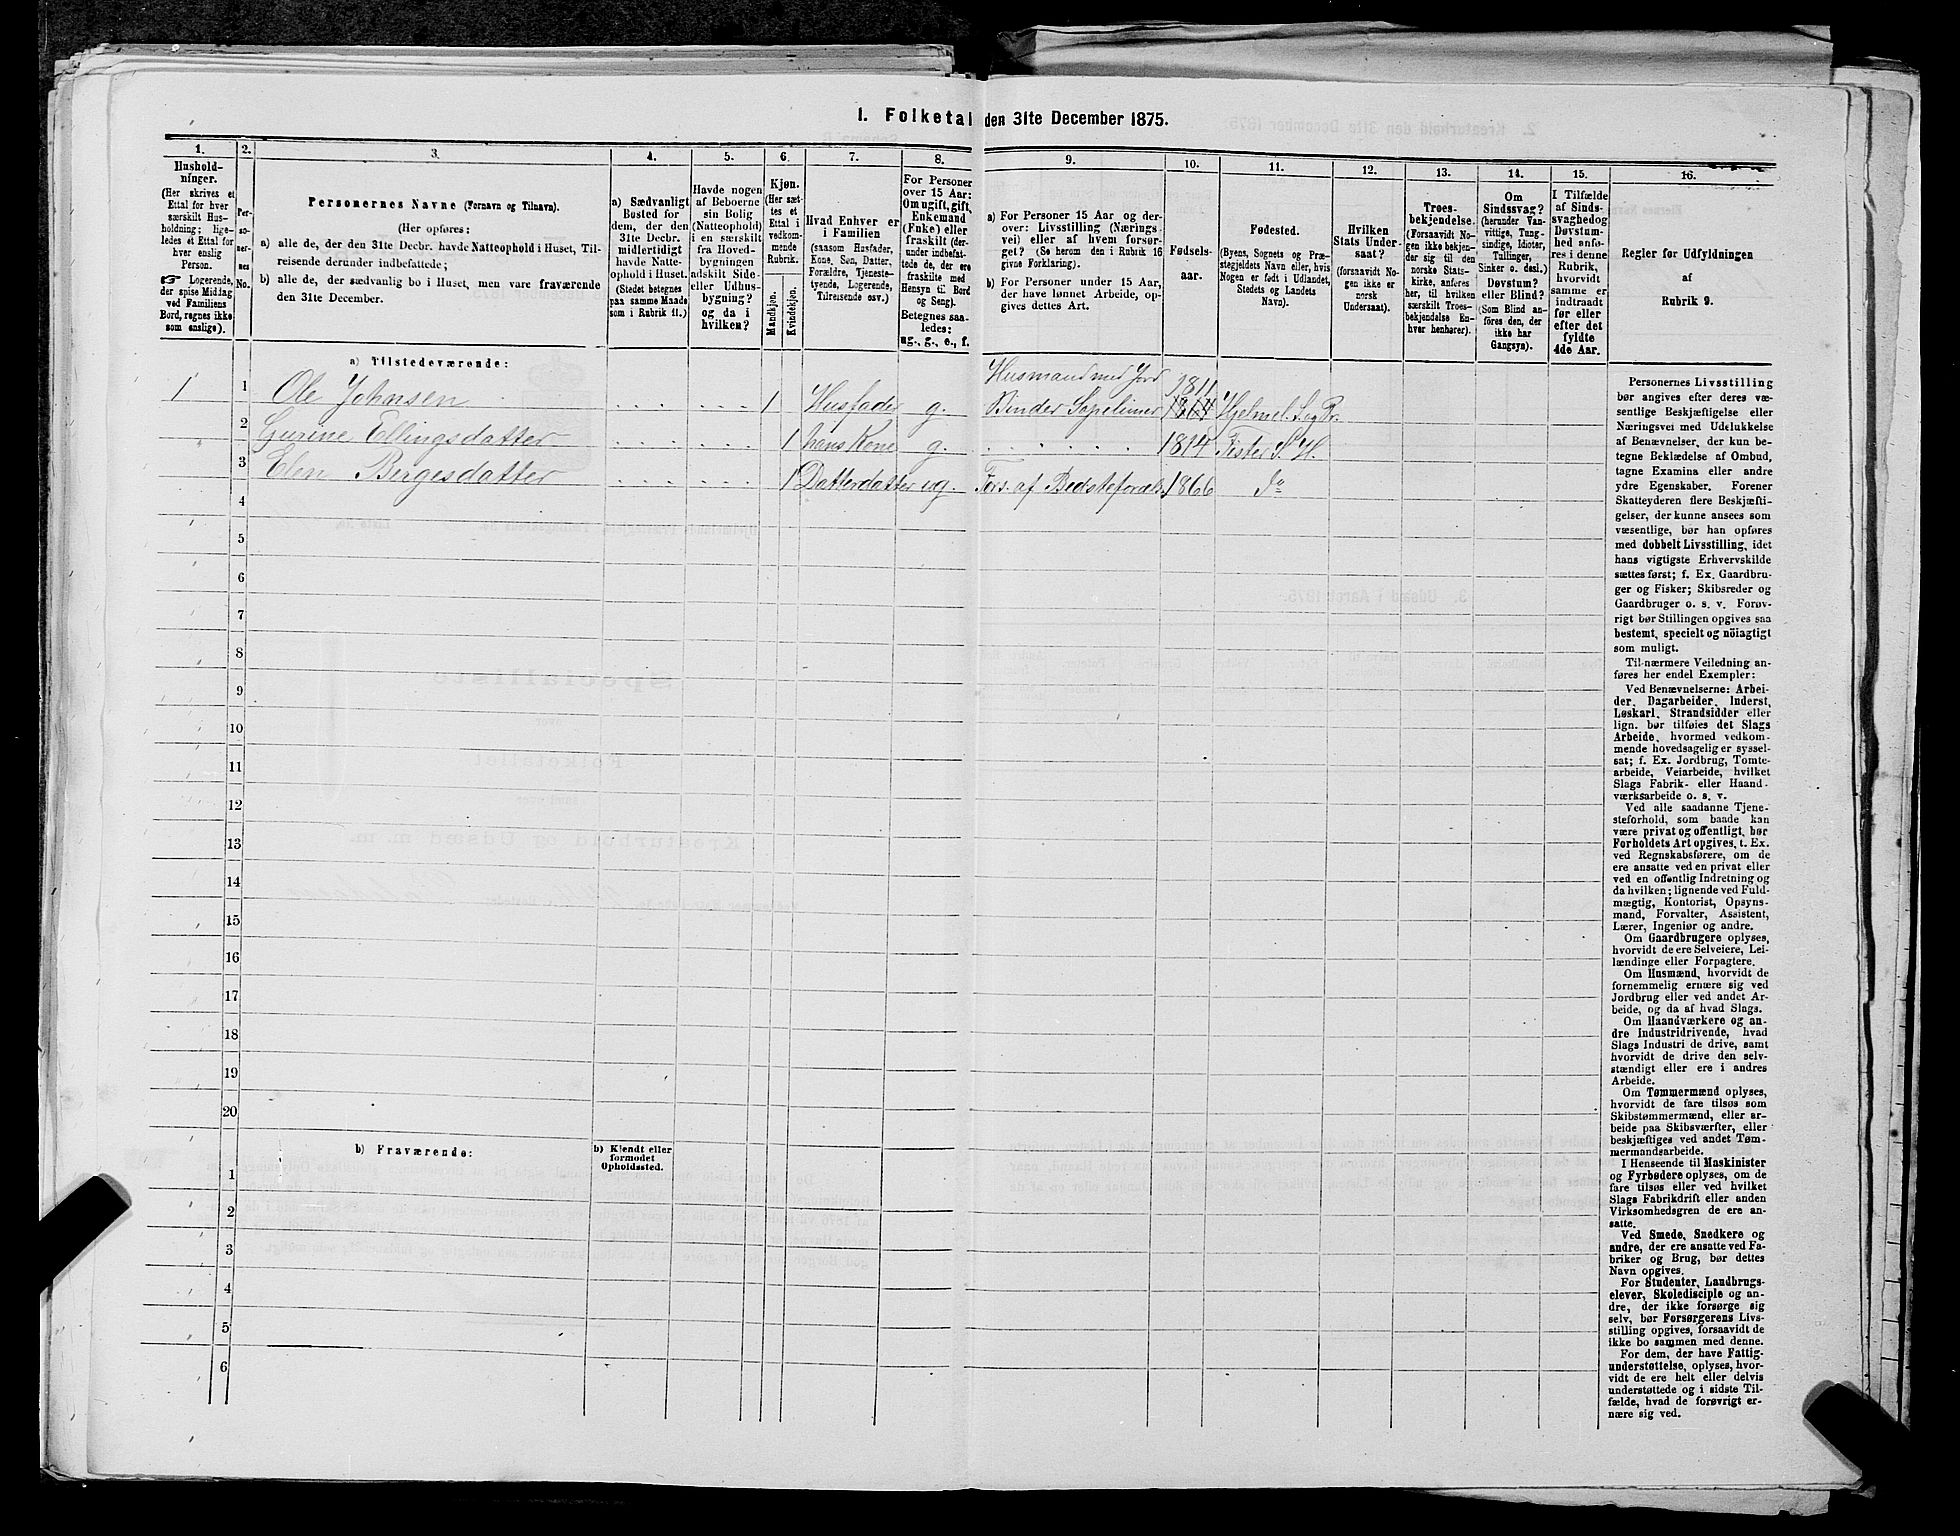 1. Folketal den 31te December 1875.
1.
Hushold-
ninger.
(Her skrives et
Ettal for hver
særskilt Hus-
holdning; lige-
ledes et Ettal for
hver enslig
Person.
☞ Logerende,
der spise Middag
ved Familiens
Bord, regnes ikke
som enslige).
2.
Per-
so-
ner-
nes
No.
3.
Personernes Navne (Fornavn og Tilnavn).
(Her opføres:
a) alle de, der den 31te Decbr. havde Natteophold i Huset, Til-
reisende derunder indbefattede;
b) alle de, der sædvanlig bo i Huset, men vare fraværende
den 31te December.
4.
a) Sædvanligt
Bosted for
dem, der den
31te Decbr.
midlertidigt
havde Natte-
ophold i Huset.
(Stedet betegnes
paa samme Maade
som i Rubrik 11.)
5.
Havde nogen
af Beboerne
sin Bolig
(Natteophold)
i en særskilt
fra Hoved-
bygningen
adskilt Side-
eller Udhus-
bygning?
og da i
hvilken?
6.
Kjøn.
(Her sæt-
tes et
Ettal i
vedkom-
mende
Rubrik.
Mandkjøn.
Kvindekjøn.
7.
Hvad Enhver er
i Familien
(saasom Husfader,
Kone, Søn, Datter,
Forældre, Tjeneste-
tyende, Logerende,
Tilreisende osv.)
8.
For Personer
over 15 Aar:
Om ugift, gift,
Enkemand
(Enke) eller
fraskilt (der-
under indbefat-
tede de, der ere
fraskilte med
Hensyn til Bord
og Seng).
Betegnes saa-
ledes:
ug., g., e., f.
9.
a) For Personer 15 Aar og der-
over: Livsstilling (Nærings-
vei) eller af hvem forsør-
get? (Se herom den i Rubrik 16
givne Forklaring).
b) For Personer under 15 Aar,
der have lønnet Arbeide, op-
gives dettes Art.
10.
Fødsels-
aar.
11.
Fødested.
(Byens, Sognets og Præ-
stegjeldets Navn eller, hvis
Nogen er født i Udlandet,
Stedets og Landets
Navn).
12.
Hvilken
Stats Under-
saat?
(forsaavidt No-
gen ikke er
norsk
Undersaat).
13.
Troes-
bekjendelse.
(Forsaavidt No-
gen ikke bekjen-
der sig til den
norske Stats-
kirke, anføres
her, til hvilken
særskilt Troes-
bekjendelse En-
hver henhører).
14.
Om
Sindssvag?
(herunder Van-
vittige, Tung-
sindige, Idioter,
Tullinger,
Sinker o. desl.)
Døvstum?
eller Blind?
(Som Blind an-
føres den, der
ikke har
Gangsyn).
15.
I Tilfælde
af Sinds-
svaghed og
Døvstum-
hed anfø-
res i denne
Rubrik,
hvorvidt
samme er
indtraadt
før eller
efter det
fyldte
4de Aar.
16.
Regler for Udfyldningen
af
Rubrik 9.
a) Tilstedeværende:
1 1 Ole Johnsen 1 Husfader g. Husmand med Jord 1811
1814 Hjelmel.
2 Gurine Ellingsdatter 1 hans Kone g. 1814 Fister S. H.
3 Elen Bergesdatter 1 Datterdatter ug. Fors. af Bedsteforæl. 1866 do
4
5
6
7
8
9
10
11
12
13
14
15
16
17
18
19
20
b) Fraværende:
b) Kjendt eller
formodet
Opholdssted.
1
2
3
4
5
6
Personernes Livsstilling
bør angives efter deres væ-
sentlige Beskjæftigelse eller
Næringsvei med Udelukkelse
af Benævnelser, der kun be-
tegne Beklædelse af Ombud,
tagne Examina eller andre
ydre Egenskaber. Forener
Skatteyderen flere Beskjæfti-
gelser, der kunne ansees som
væsentlige, bør han opføres
med dobbelt Livsstilling, idet
hans vigtigste Erhvervskilde
sættes først; f. Ex. Gaardbru-
ger og Fisker; Skibsreder og
Gaardbruger o. s. v. Forøv-
rigt bør Stillingen opgives saa
bestemt, specielt og nöiagtigt
som muligt.
Til nærmere Veiledning an-
føres her endel Exempler:
Ved Benævnelserne: Arbei-
der, Dagarbeider, Inderst,
Løskarl, Strandsidder eller
lign. bør tilføies det Slags
Arbeide, hvormed vedkom-
mende hovedsagelig er syssel-
sat; f. Ex. Jordbrug, Tomte-
arbeide, Veiarbeide, hvilket
Slags Fabrik- eller Haand-
værksarbeide o. s. v.
Ved alle saadanne Tjene-
steforhold, som baade kan
være privat og offentligt, bør
Forholdets Art opgives, t. Ex.
ved Regnskabsførere, om de
ere ansatte ved en privat eller
ved en offentlig Indretning og
da hvilken; lignende ved Fuld-
mægtig, Kontorist, Opsyns-
mand, Forvalter, Assistent,
Lærer, Ingeniør og andre.
Om Gaardbrugere oplyses,
hvorvidt de ere Selveiere, Lei-
lændinge eller Forpagtere.
Om Husmænd, hvorvidt de
fornemmelig ernære sig ved
Jordbrug eller ved andet Ar-
beide, og da af hvad Slags.
Om Haandværkere og an-
dre Industridrivende, hvad
Slags Industri de drive, samt
hvorvidt de drive den selv-
stændigt eller ere i andres
Arbeide.
Om Tømmermænd oplyses,
hvorvidt de fare tilsøs som
Skibstømmermænd, eller ar-
beide paa Skibsværfter, eller
beskjæftiges ved andet Tøm-
mermandsarbeide.
I Henseende til Maskinister
og Fyrbødere oplyses, om de
fare tilsøs eller ved hvilket
Slags Fabrikdrift eller anden
Virksomhedsgren de ere an-
satte.
Ved Smede, Snedkere og
andre, der ere ansatte ved Fa-
briker og Brug, bør dettes
Navn opgives.
For Studenter, Landbrugs-
elever, Skoledisciple og an-
dre, der ikke forsørge sig
selv, bør Forsørgerens Livs-
stilling opgives, forsaavidt de
ikke bo sammen med denne.
For dem, der have Fattig-
understøttelse, oplyses, hvor-
vidt de ere helt eller delvis
understøttede og i sidste Til-
fælde, hvad de forøvrigt er-
nære sig ved.